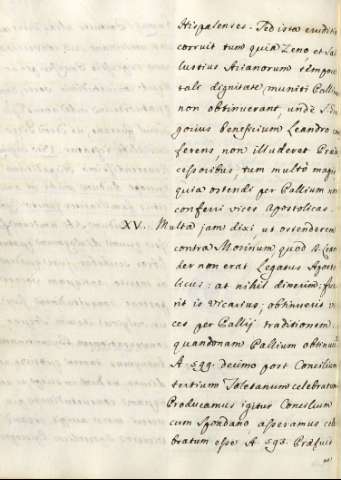 Hispalenses. Sed ista eruditio
corruit tum quia Zeno, et Sal
lustius Arianorum tempore
tali dignitate muniti Pallium
non obtinuerant, undè S. Gre
gorius beneficium Leandro con
ferens, non illuderet Præde
cessoribus; tum multò magis
quia ostendi per Pallium non
conferri vices Apostolicas.
XV. Multa jam dixi, ut ostenderem
contra Morinum, quod S. Lean
der non erat Legatus Aposto
licus: at nihil dixerim; fue
rit is Vicarius; obtinuerit vi
ces per Pallij traditionem.
quandonam Pallium obtinuit?
A. 599. decimo post Concilium
tertium Toletanum celebratum
Producamus igitur Concilium
cum Spondano, asseramus cele
bratum esse A. 593. Præfuit